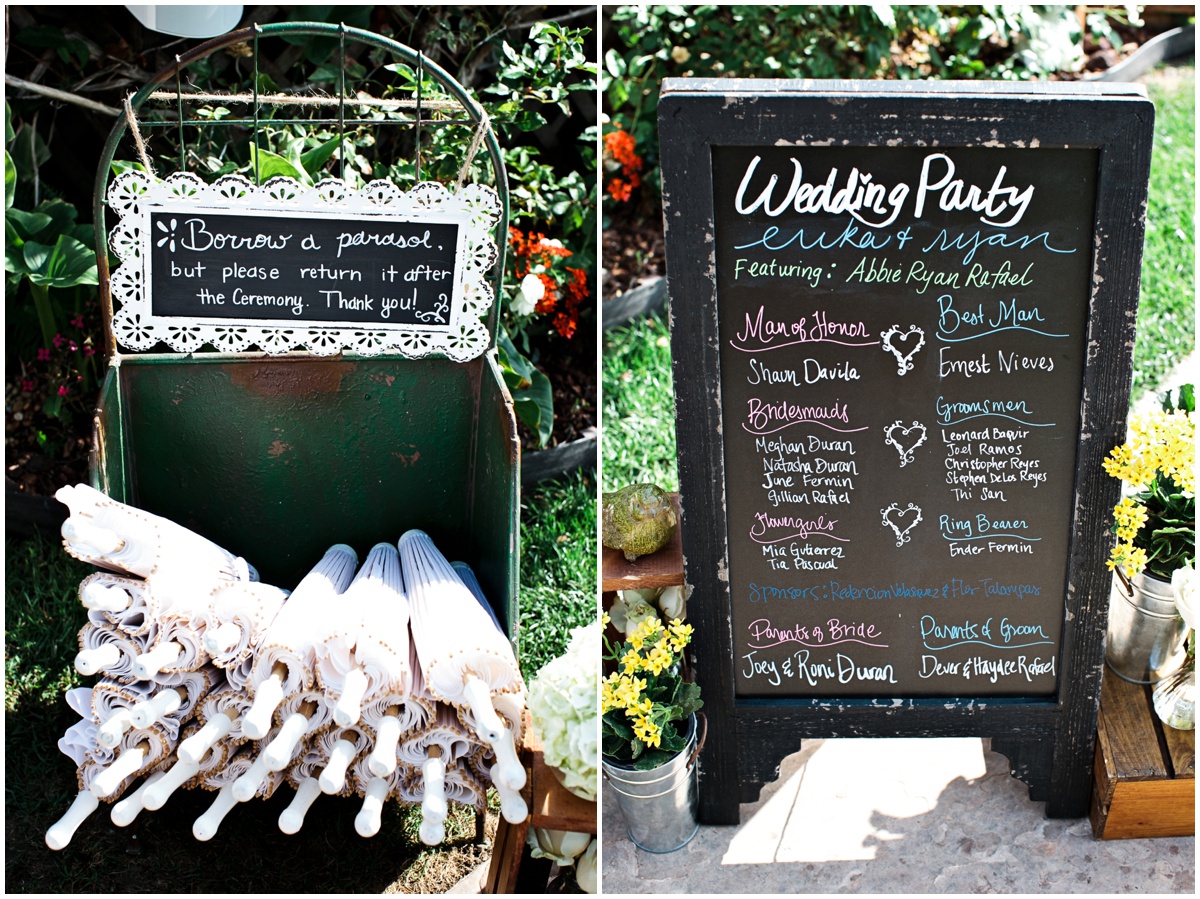 Borrow a parasol,
but please return it after
the Ceremony. Thank you!
Wedding Party
erika & ryan
Featuring: Abbie Ryan Rafael
Man of Honor
Shaun Davila
Best Man
Ernest Nieves
Bridesmaids
Meghan Duran
Natasha Duran
June Fermin
Gillian Rafael
Groomsmen
Leonard Baquir
Joel Ramos
Christopher Reyes
Stephen DeLos Reyes
Thi San
Flowergirls
Mia Gutierrez
Tia Pascual
Ring Bearer
Ender Fermin
Sponsors: Redencion Velasquez & Flor Talampas
Parents of Bride
Joey & Roni Duran
Parents of Groom
Dever & Haydee Rafael